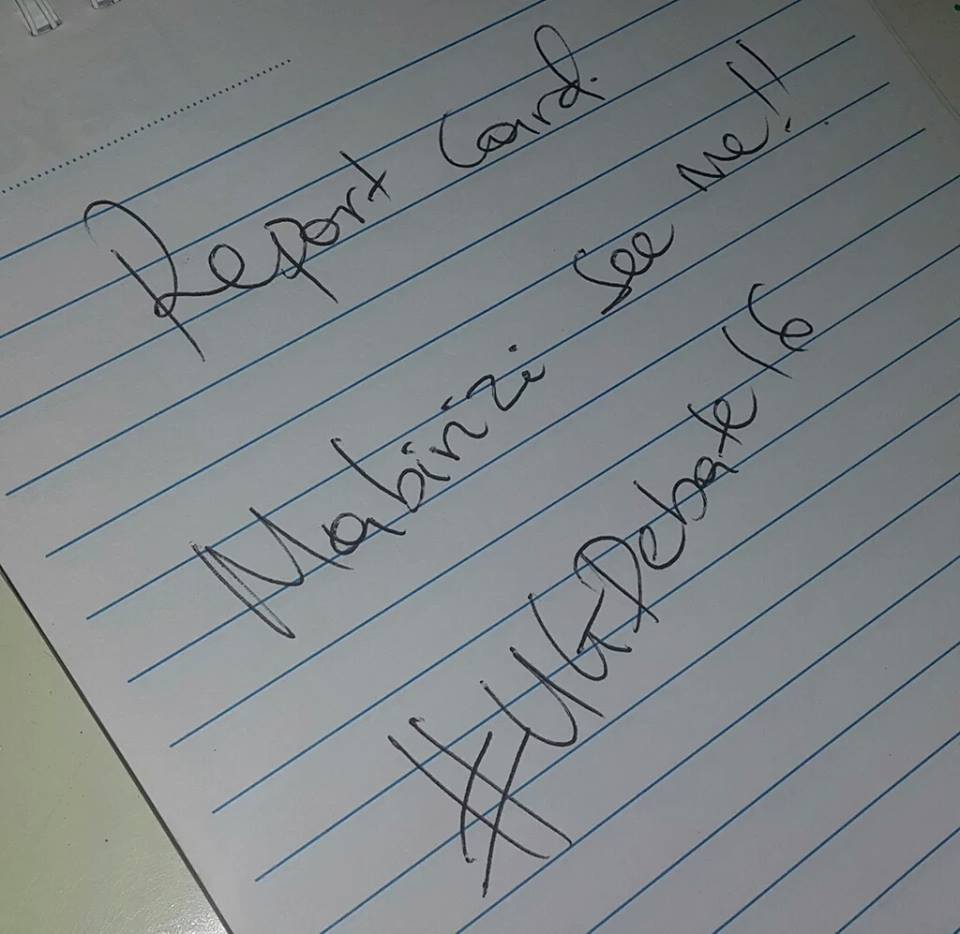 Report Card.
Mabirizi See Me!!
#UGDebate16